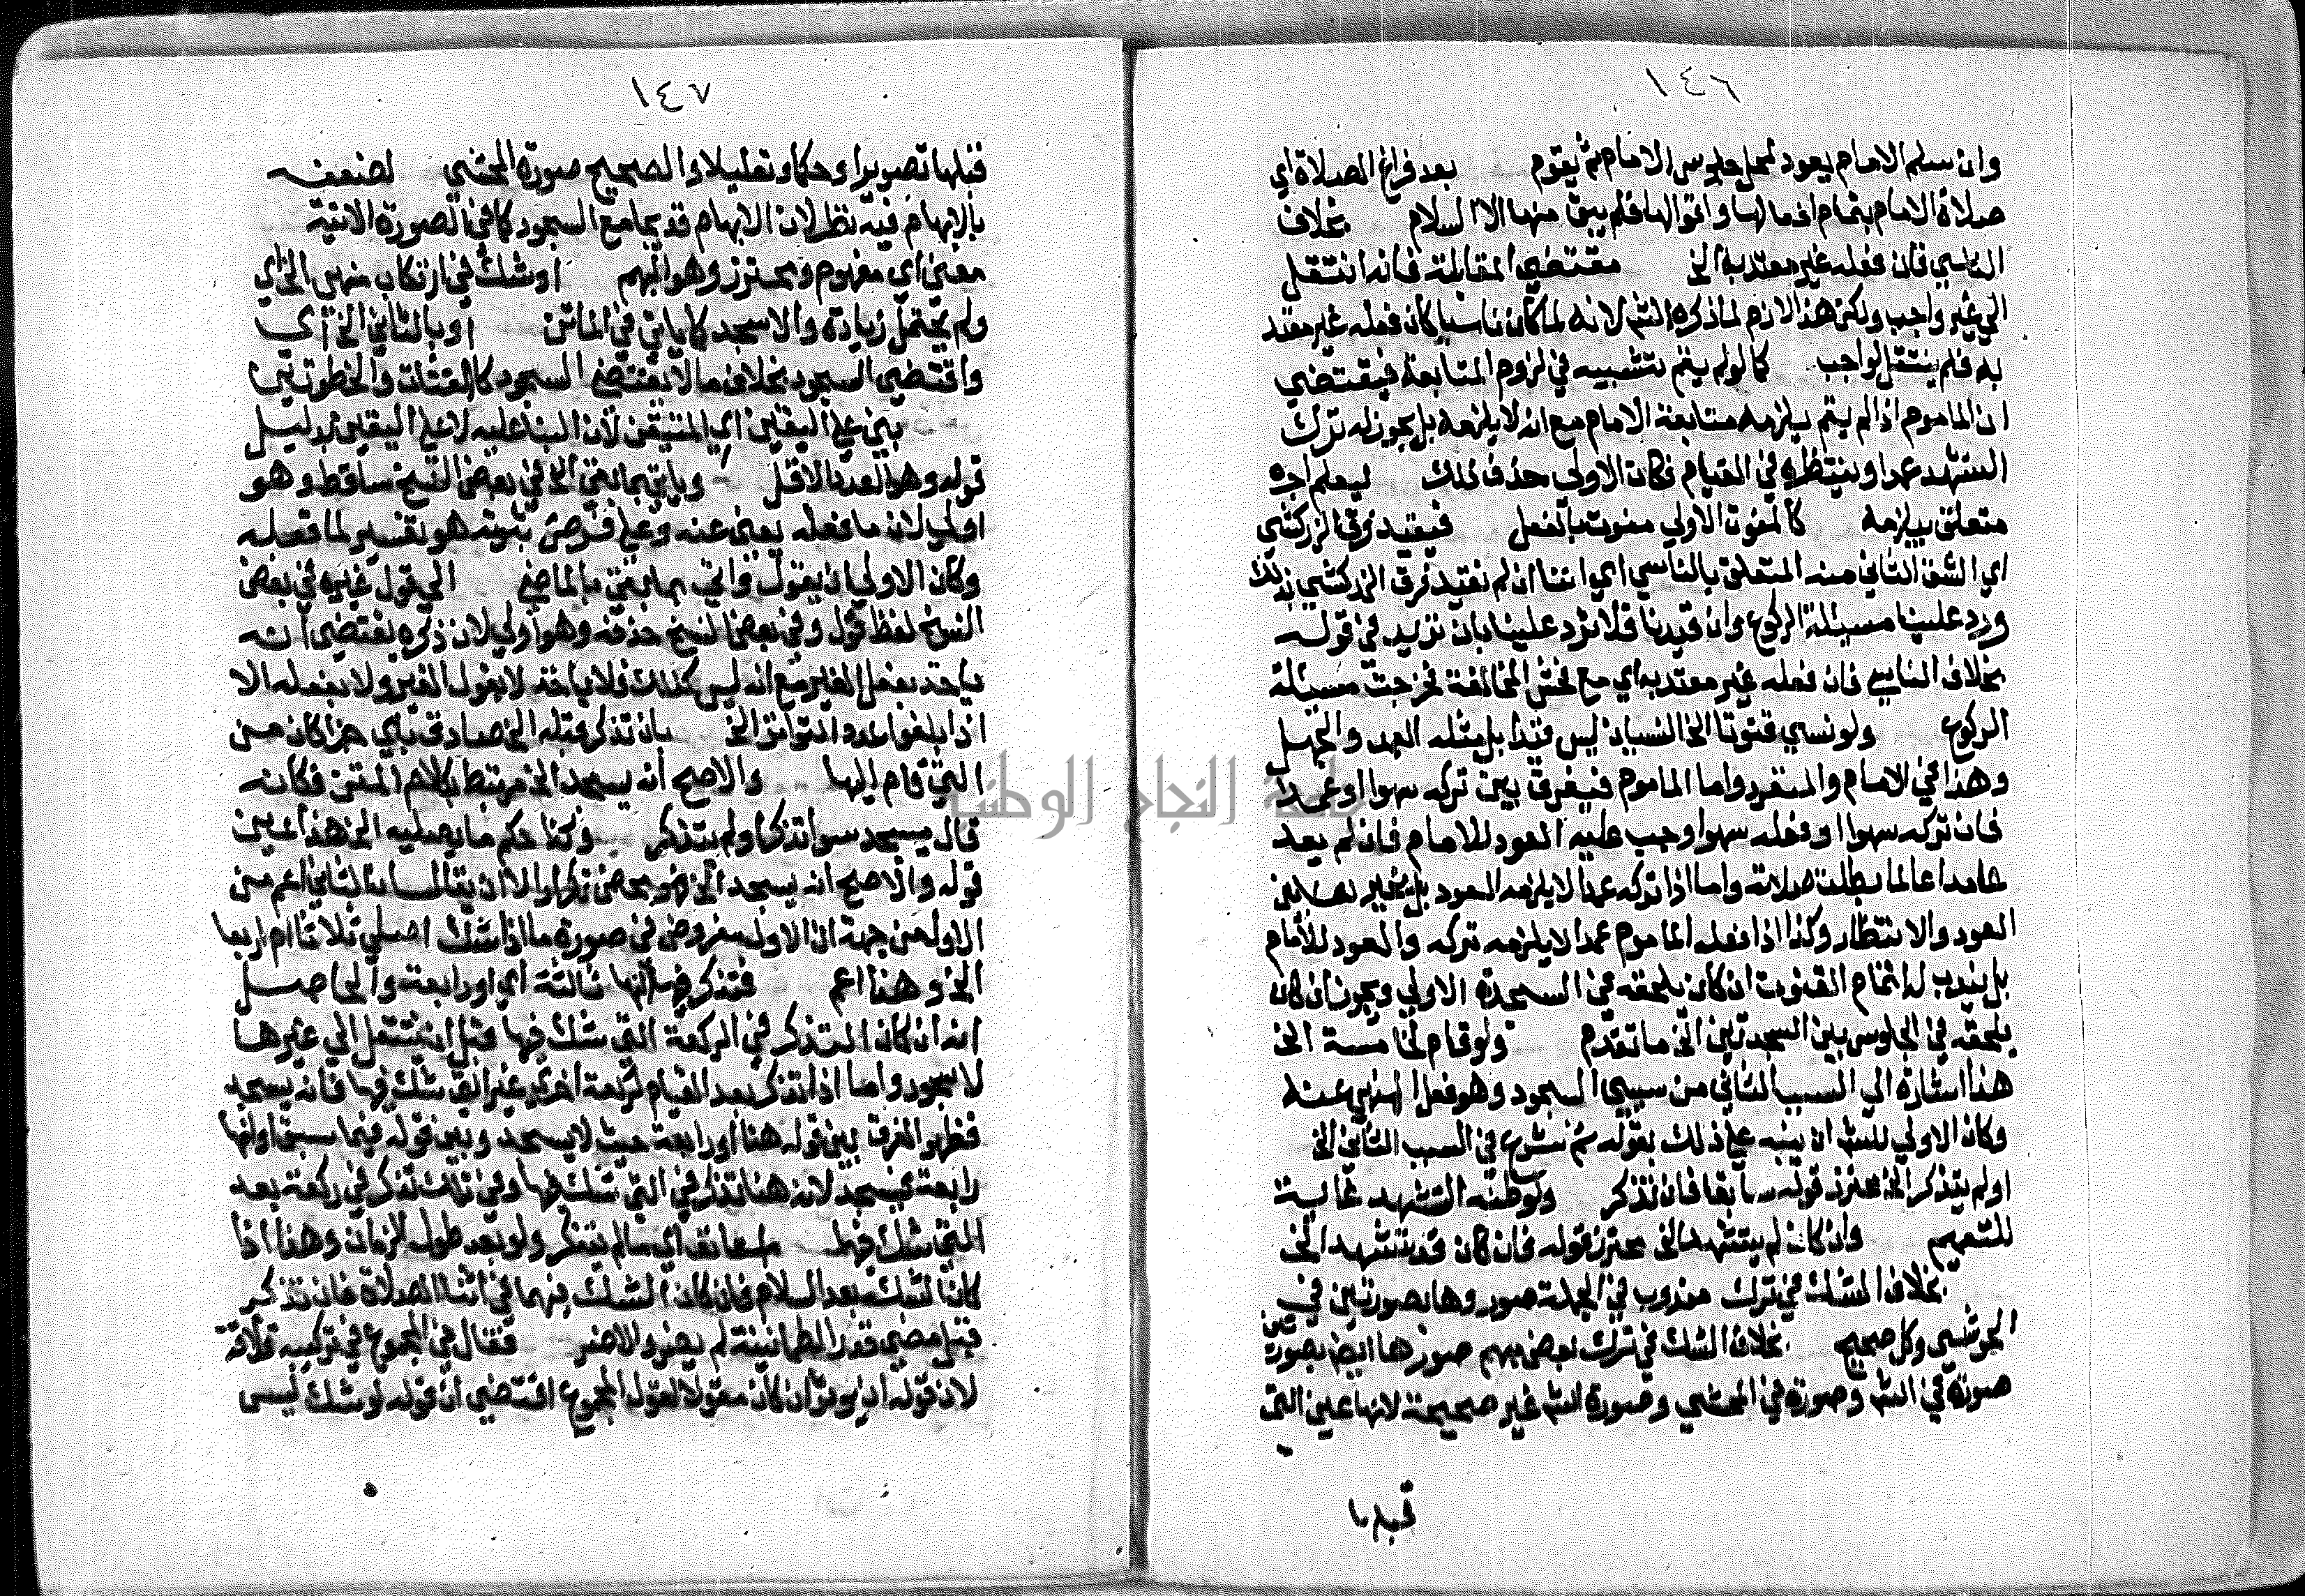 ١٤٦
وان سلم الامام يعود لمحل جلوس الامام ثم يقوم بعد فراغ الصلاة اي
صلاة الامام بتمام افعالها واقوالها فلم يبق منها الا السلام بخلاف
الناسي فان فعله غير معتد به الخ مقتضي المقابلة فانه انتقل
الي غير واجب ولكن هذا لازم لما ذكره الشم لانه لما كان ناسيا كان فعله غير معتد
به فلم ينتقل لواجب كما لو لم يتم تشبيه في لزوم المتابعة فيقتضي
ان الماموم اذا لم يتم يلزمه متابعة الامام مع انه لا يلزمه بل يجوز له ترك
التشهد عمدا وينتظره في القيام فكان الاولي حذف ذلك ليعلم اجه
متعلق بيلزمه كالمفوت الاولي مفوت بالفعل فيقيد فرق الزركشي
اي الشق الثاني منه المتعلق بالناسي اي اننا ان لم نقيد فرق الزركشي بذلك
ورد علينا مسيلة الركوع وان قيدنا فلا ترد علينا بان نزيد في قوله
بخلاف الناسي فان فعله غير معتد به اي مع فحش المخالفة فخرجت مسيلة
الركوع ولو نسي قنوتا الخ النسيان ليس قيدا بل مثله العمد والجهل
وهذا في الامام والمنفرد واما الماموم فيفرق بين تركه سهوا او عمدا
فان تركه سهوا او فعله سهوا وجب عليه العود للامام فان لم يعد
عامدا عالما بطلت صلاته واما اذا تركه عمدا لا يلزمه العود بل يتخير بين
العود والانتظار وكذا اذا فعله الماموم عمدا لا يلزمه تركه والعود للامام
بل يندب له اتمام القنوت ان كان يلحقه في السجدة الاولي ويجوز ان كان
يلحقه في الجلوس بين السجدتين الخ ما تقدم ولو قام لخامسة الخ
هذا اشارة الي السبب الثاني من سببي السجود وهو فعل المنهي عنه
وكان الاولي للشم ان ينبه علي ذلك بقوله ثم شرع في السبب الثاني الخ
او لم يتذكر الخ محترز قوله سابقا فان تذكر ولو ظنه التشهد غاية
للتعميم وان كان لم يتشهد الخ محترز قوله فان كان قد تشهد الخ
بخلاف الشك في ترك مندوب في الجملة صور وها بصورتين في
الحوشي وكل صحيح بخلاف الشك في ترك بعض مبهم صورها ايضا بصورتين
صورة في الشم وصورة في المحشي وصورة الشم غير صحيحة لانها عين التي
قبلها
١٤٧
قبلها تصويرا وحكما وتعليلا والصحيح صورة المحشي لضعفه
بالابهام فيه نظر لان الابهام قد يجامع السجود كما في الصورة الاتية
معني اي مفهوم ومحترز وهو المبهم او شك في ارتكاب منهي الخ اي
ولم يحتمل زيادة والا سجد كما ياتي في المتن او بالثاني الخ اي
واقتضي السجود بخلاف ما لا يقتضي السجود كالتفات والخطوتين
بني علي اليقين اي المتيقن لان البنا عليه لا علي اليقين بدليل
قوله وهو العدد الاقل وياتي بما بقي الخ في بعض النسخ ساقط وهو
اولي لان ما فعله يغني عنه وعلي فرض ثبوته هو تفسير لما قصله
وكان الاولي ان يقول واتي بما بقي بالماضي الي قول غيره في بعض
النسخ لفظ قول وفي بعض النسخ حذفه وهو اولي لان ذكره يقتضي انه
ياخذ بفعل الغير مع انه ليس كذلك فلا ياخذ لا بقول الغير ولا بفعله الا
اذا بلغوا عدد التواتر الخ بان تذكر قبله الخ صادق باي جزا كان من
التي قام اليها والاصح انه يسجد الخ مرتبط بكلام المتن فكانه
قال يسجد سوا تذكر او لم يتذكر وكذا حكم ما يصليه الخ هذا عين
قوله والاصح انه يسجد الخ فهو محض تكرار الا ان يقال ان الثاني اعم من
الاول من جهة ان الاول مفروض في صورة ما اذا شك اصلي ثلاثا ام اربعا
الخ وهذا اعم فتذكر فيها انها ثالثة اي او رابعة والحاصل
انه ان كان التذكر في الركعة التي شك فيها قبل ان ينتقل الي غيرها
لا سجود واما اذا تذكر بعد القيام لركعة اخري غير التي شك فيها فانه يسجد
فظهر الفرق بين قوله هنا او رابعة حيث لا يسجد وبين قوله فيما سبق او انها
رابعة يسجد لانه هنا تذكر في التي شك فيها وفي تلك تذكر في ركعة بعد
التي شك فيها اي ما لم يتذكر ولو بعد طول الزمان وهذا اذا
كان الشك بعد السلام فان كان الشك فيهما في اثنا الصلاة فان تذكر
قبل مضي قدر الطمانينة لم يضر والا ضر فقال في المجموع في تركيبه قلاقة
لان قوله ان كان مقولا لقول المجموع اقتضي ان قوله لو شك ليس